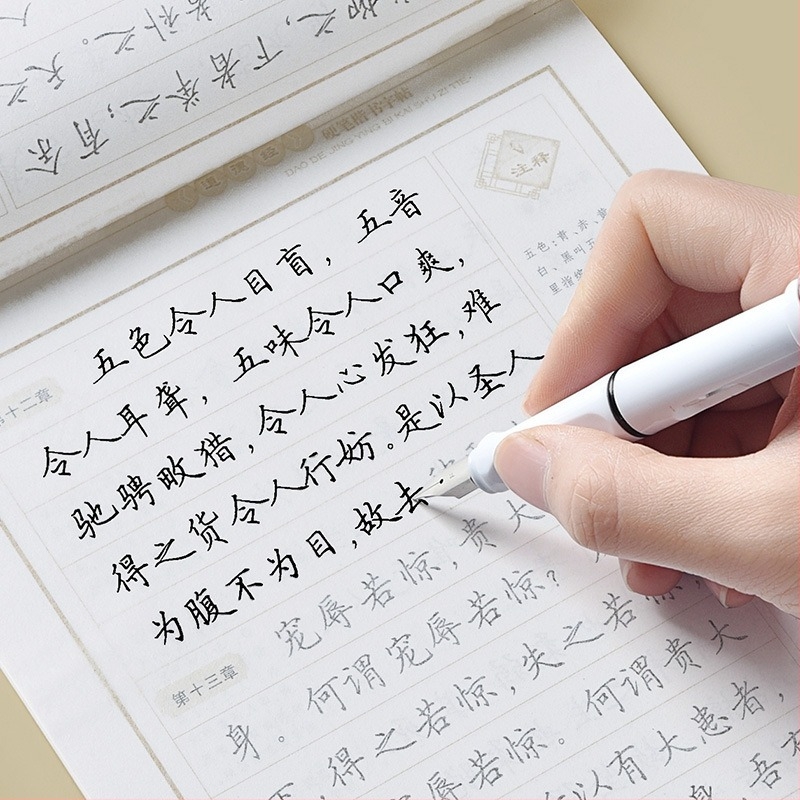 柳之。
者补之。天之
下者举之;有余
道德经
硬笔楷书字帖
DAO DE JING YING BI KAI SHU ZI TIE
注释
五色:青、赤、黄
白、黑叫五
里指
第十二章
五色令人目盲,五音
令人耳聋,五味令人口爽,
驰骋畋猎,令人心发狂,难
得之货令人行妨。是以圣人
为腹不为目,故去
第十三章
宠辱若惊,贵大
身。何谓宠辱若惊?
得之若惊,失之若惊,
辱若惊。何谓贵大
以有大患者,
身,吾有